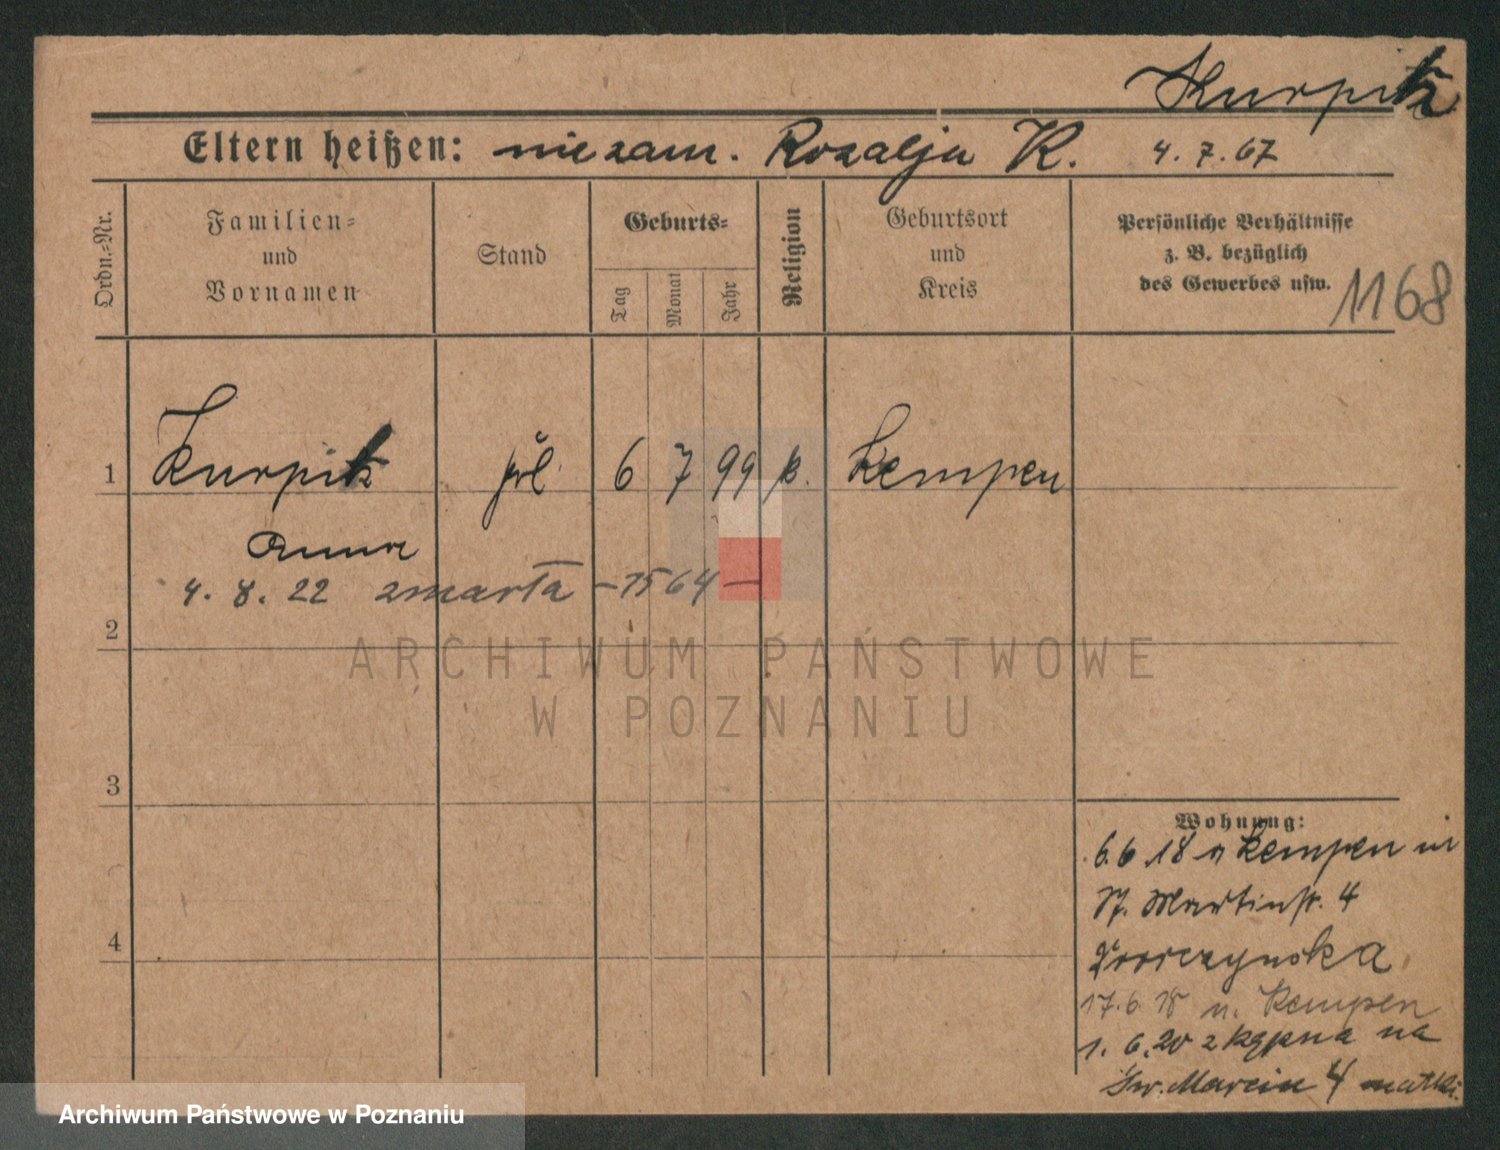 Kurpitz
Eltern heißen: niezam. Rozalja K. 4. 7. 67
Ordn.-Nr.
Familien- und Vornamen
Stand
Geburts-
Tag
Monat
Jahr
Religion
Geburtsort und Kreis
Persönliche Verhältnisse
z. B. bezüglich
des Gewerbes usw.
1168
1 Kurpitz 6 7 99 k. Kempen
Anna
4. 8. 22 zmarła – 1564 –
2
ARCHIWUM PAŃSTWOWE
W POZNANIU
3
Wohnung:
6.6 18 v Kempen in
St. Martinstr. 4
4
17. 6. 18 n. Kempen
1. 6. 20 z Kępna na
Św. Marcin 4 matki
Archiwum Państwowe w Poznaniu